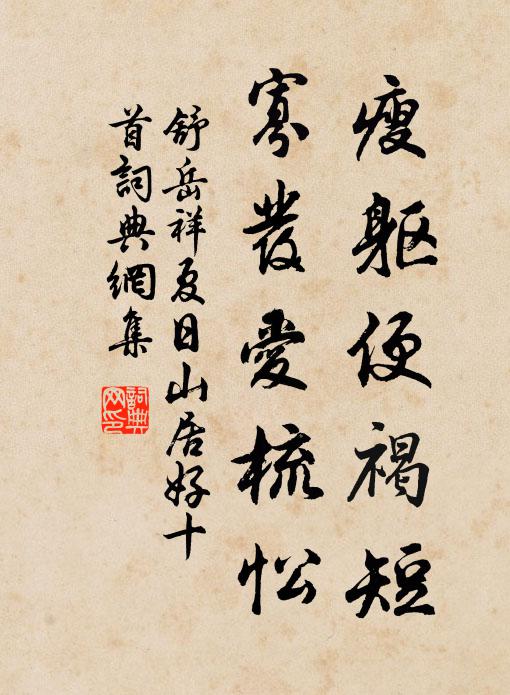 瘦躯便褐短
寡發愛梳忪
舒岳祥夏日山居好十
首詞典網集
詞典网印